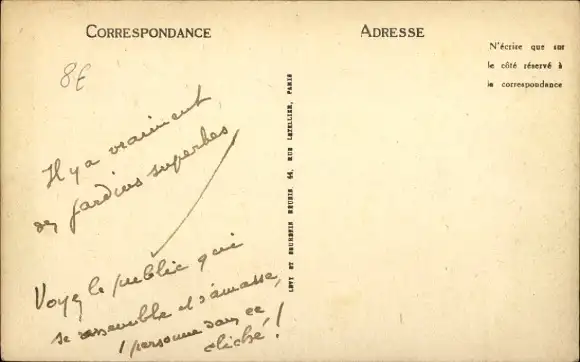 CORRESPONDANCE
ADRESSE
N'écrire que sur
le côté réservé à
la correspondance
8€
Il y a vraiment
des jardins superbes
Voyez le public qui
se rassemble et s'amasse,
1 personne dans ce
cliché !
LEVY ET NEURDEIN RÉUNIS, 44, RUE LETELLIER, PARIS